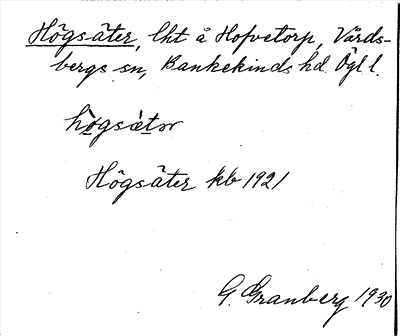 Högsäter, lht å Hofvetorp, Vårds-
bergs sn, Bankekinds hd. Ögl l.
hògsætər
Högsäter kb 1921
G. Granberg 1930